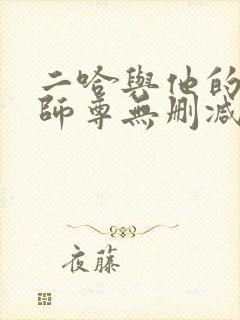 二哈與他的
師尊無刪減
夜藤